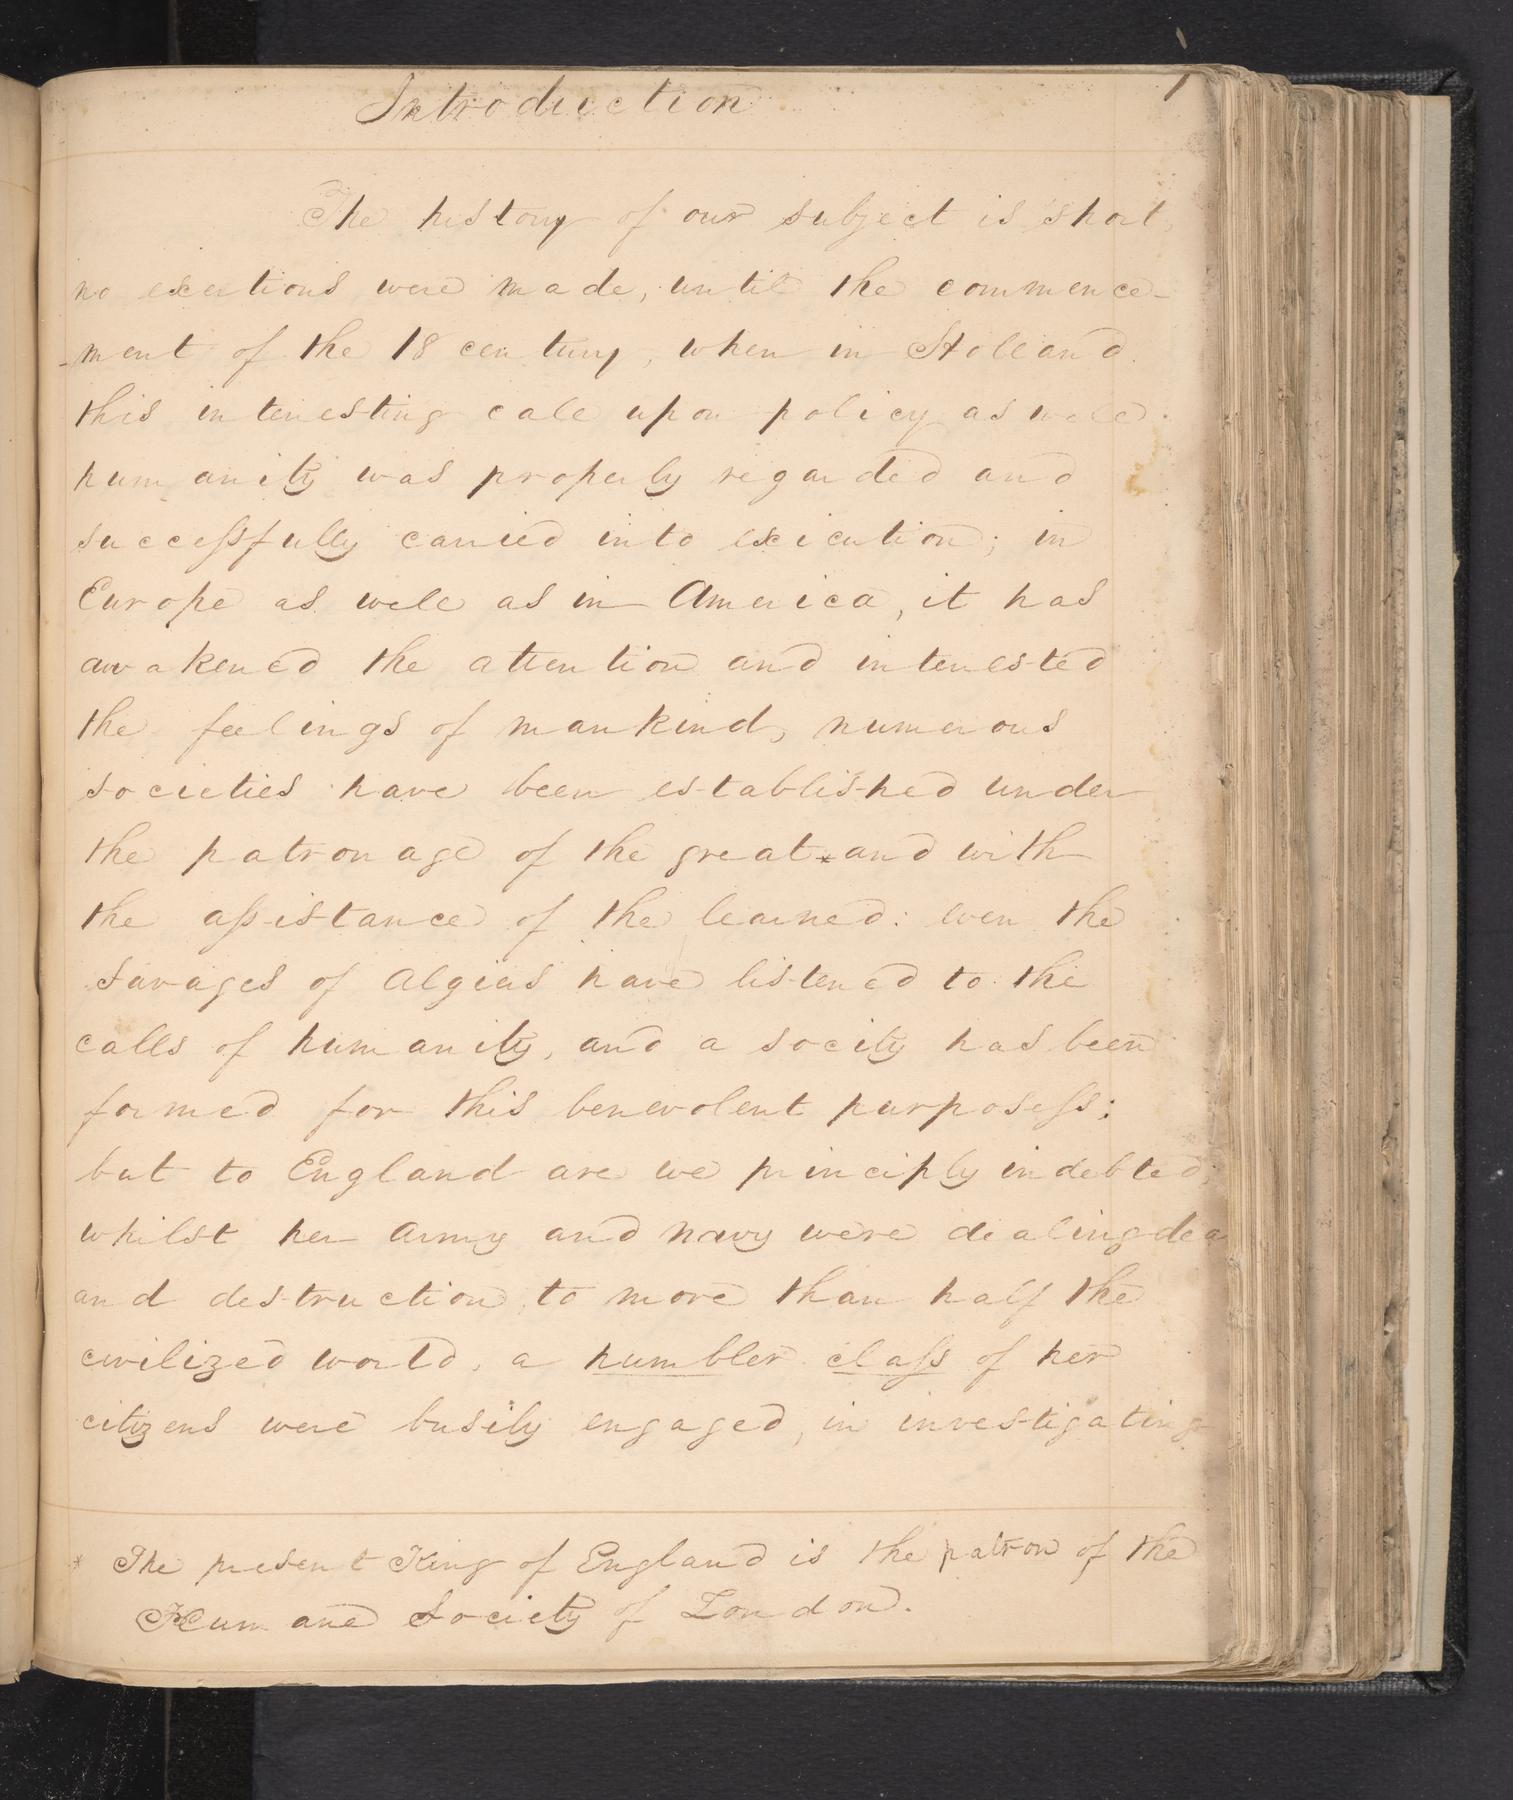 Introduction
1
The history of our subject is short,
no exertions were made, until the commence-
-ment of the 18 century, when in Holland
this interesting call upon policy as well
humanity was properly regarded and
successfully carried into exicution; in
Europe as well as in America, it has
awakened the attention and interested
the feelings of mankind, numerous
societies have been established under
the patronage of the great * and with
the assistance of the learned: even the
Savages of Algias have listened to the
calls of humanity, and a socity has been
formed for this benevolent purposess;
but to England are we principly indebted;
whilst her Army and Navy were dealing dea
and destruction to more than half the
civilized world, a humbler class of her
citizens were busily engaged, in investigating
* The present King of England is the patron of the
Humane Society of London.